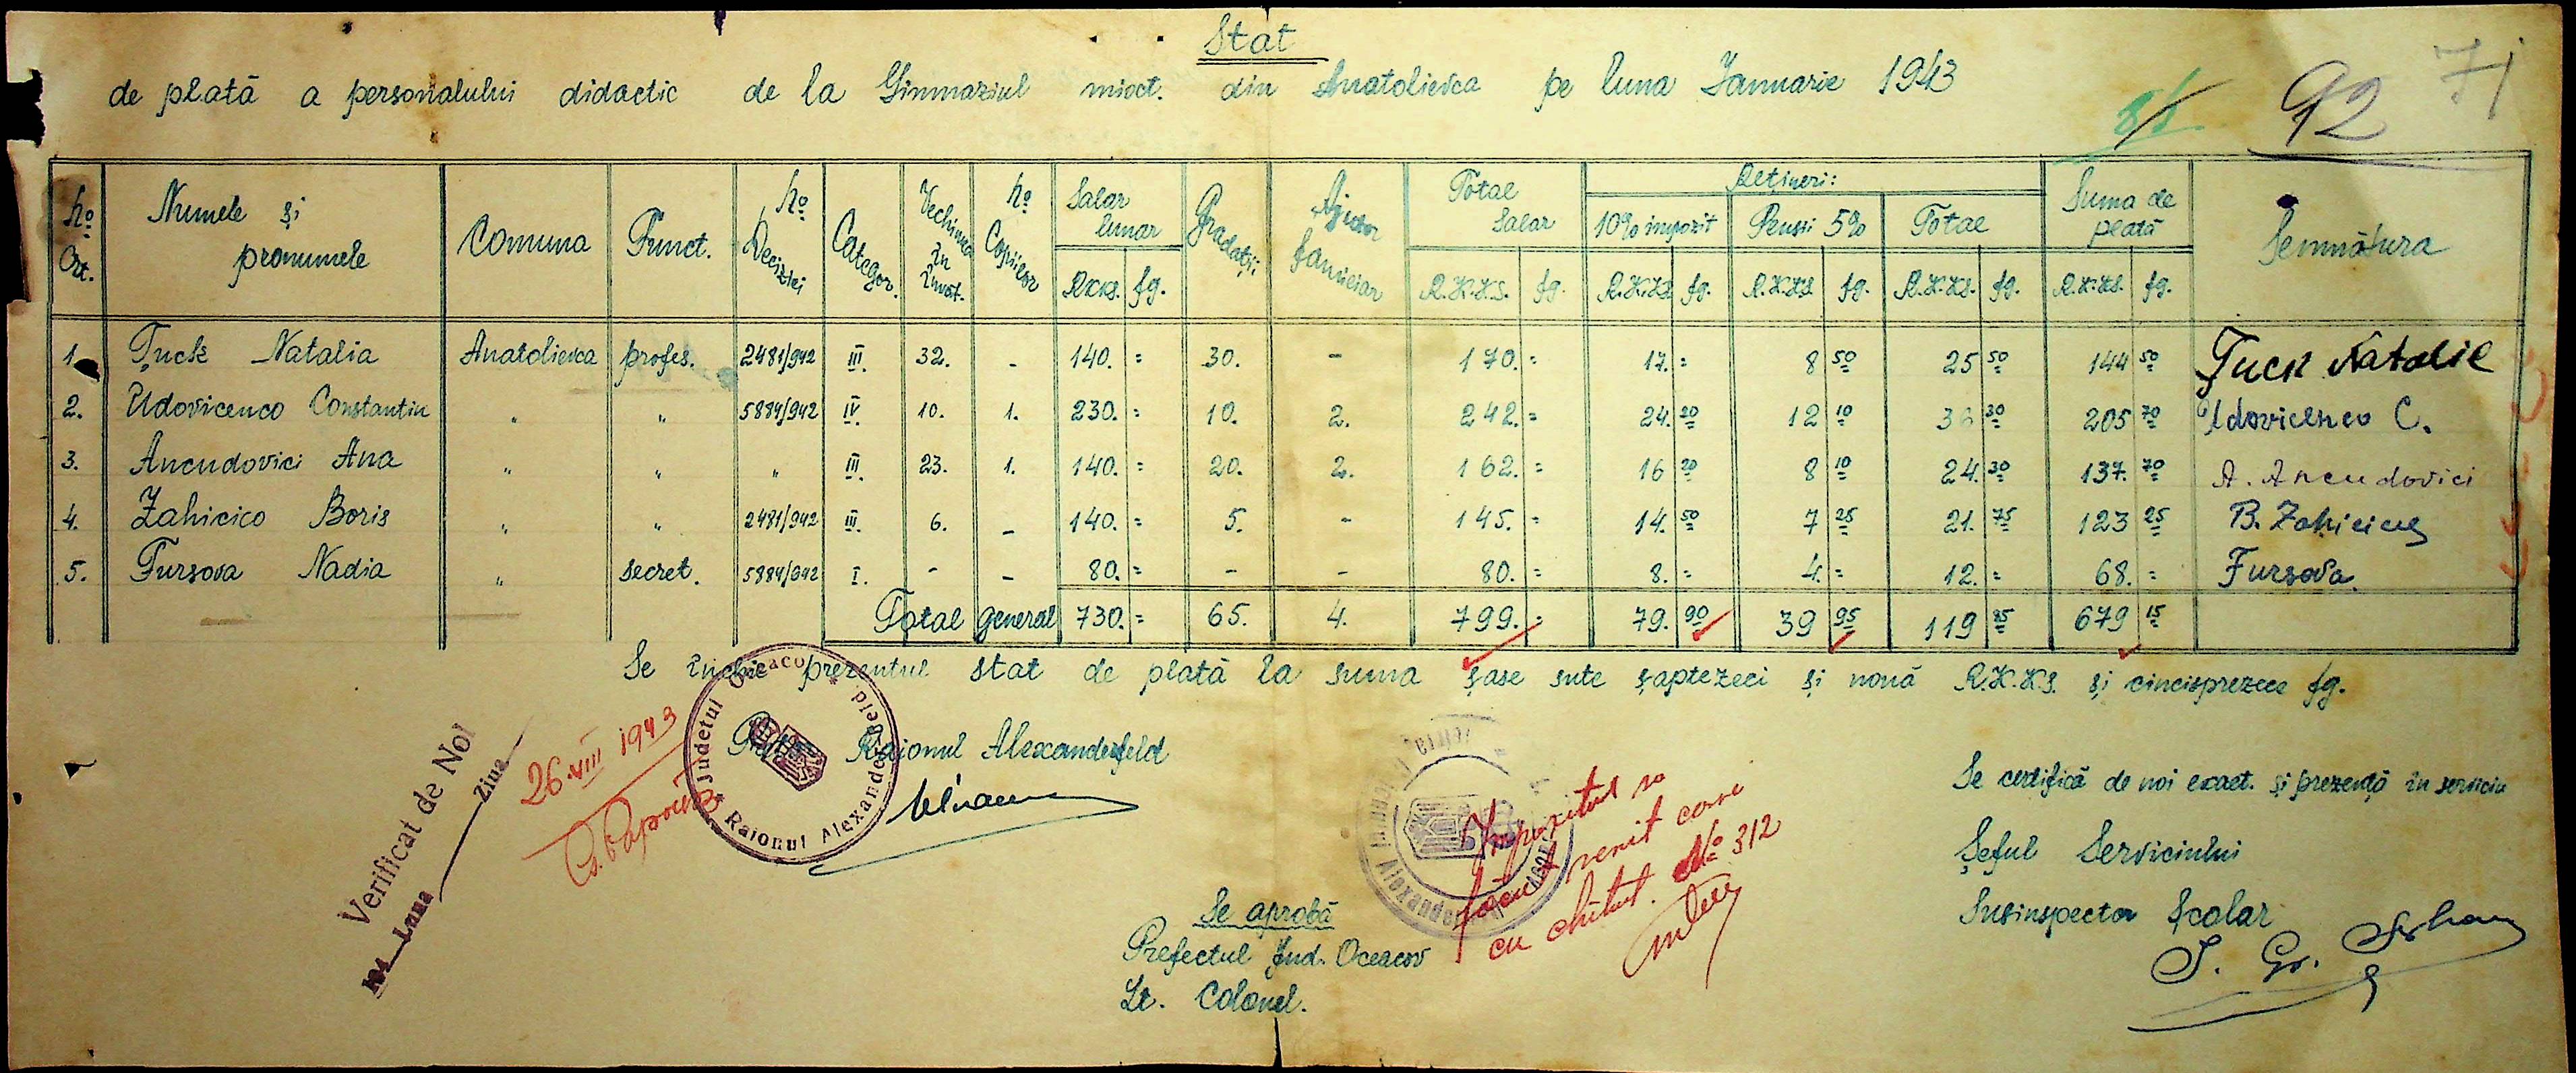 Stat
de plată a personalului didactic de la Gimnaziul mixt. din Anatolievca pe luna Ianuarie 1943
92 71
No Crt. Numele și pronumele Comuna Funct. No Deciziei Categor. Vechimea în învăt. No Copiilor Salar lunar Gradații Ajutor familiar Total Salar Rețineri: Suma de plată Semnătura
10% impozit Pensii 5% Total
R.K.K.S. fg. R.K.K.S. fg. R.K.K.S. fg. R.K.K.S. fg. R.K.K.S. fg. R.K.K.S. fg.
1. Țuck Natalia Anatolievca profes. 2481/942 III. 32. - 140. = 30. - 170. = 17. = 8 50 25 50 144 50 Țuck Natalie
2. Udovicenco Constantin " " 5884/942 IV. 10. 1. 230. = 10. 2. 242. = 24. 20 12 10 36 30 205 70 Udovicenco C.
3. Ancudovici Ana " " " III. 23. 1. 140. = 20. 2. 162. = 16 20 8 10 24. 30 137. 70 A. Ancudovici
4. Zahicico Boris " " 2481/942 III. 6. - 140. = 5. - 145. = 14. 50 7 25 21. 75 123 25 B. Zahicico
5. Fursova Nadia " secret. 5884/942 I. - - 80. = - - 80. = 8. = 4. = 12. = 68. = Fursova
Total general 730. = 65. 4. 799. = 79. 90 39 95 119 85 679 15
Se închie prezentul stat de plată la suma șase sute șaptezeci și nouă R.K.K.S. și cincisprezece fg.
Raionul Alexanderfeld
Județul Oceacov * Raionul Alexanderfeld *
Verificat de Noi
Luna Ziua
26.VIII 1943
Impozitul
cu chitut. No 312
Se certifică de noi exact. și prezență în serviciu
Șeful Serviciului
Susinspector Școlar
Se aprobă
Prefectul Jud. Oceacov
Lt. Colonel.